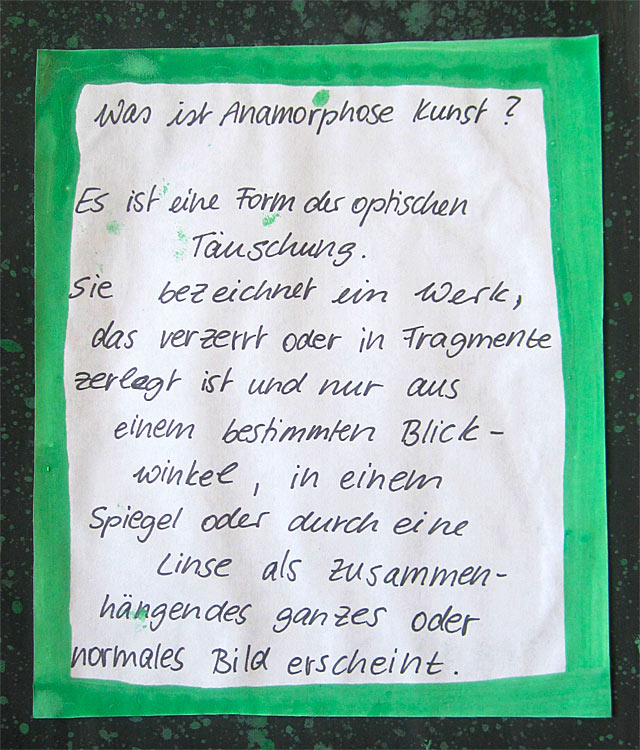 Was ist Anamorphose Kunst?
Es ist eine Form der optischen
Täuschung.
Sie bezeichnet ein Werk,
das verzerrt oder in Fragmente
zerlegt ist und nur aus
einem bestimmten Blick-
winkel, in einem
Spiegel oder durch eine
Linse als zusammen-
hängendes ganzes oder
normales Bild erscheint.